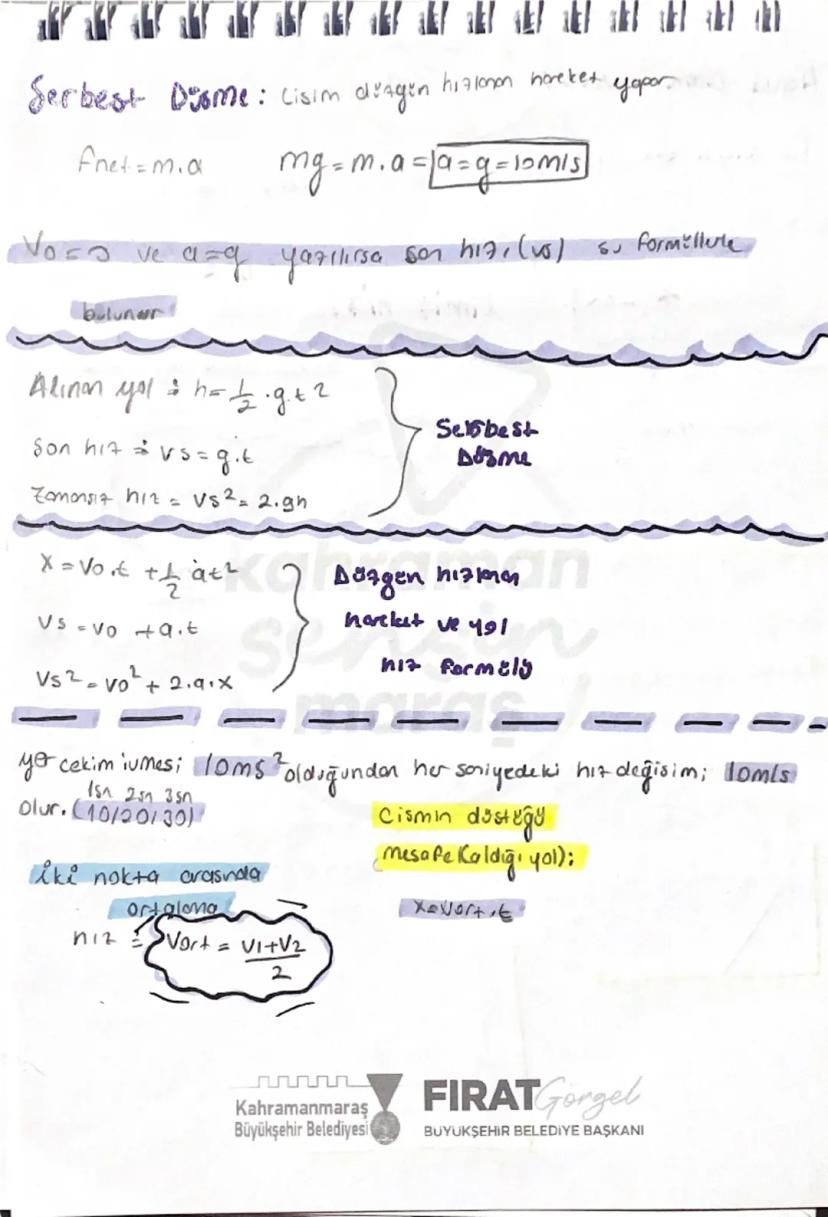 Serbest Düşme: Cisim düzgün hızlanan hareket yapar
Fnet = m.a mg = m.a = a = g = 10m/s
Vo = 0 ve a = g yazılırsa son hızı (vs) şu formüllerle
bulunur
Alınan yol : h = 1/2 . g.t 2
Son hız : vs = g.t
Zamansız hız = Vs² = 2.gh
Serbest
Düşme
X = Vo.t + 1/2 at²
Vs = Vo + a.t
Vs² = Vo² + 2.a.x
Düzgün hızlanan
hareket ve yol
hız formülü
kahraman
şensin
maraş
yer çekim ivmesi; 10ms² olduğundan her saniyedeki hız değişim; 10m/s
1sn 2sn 3sn
olur. (10/20/30)
Cismin düştüğü
mesafe (aldığı yol);
İki nokta arasında
ortalama
X = Vort.t
hız = Vort = V1+V2 / 2
Kahramanmaraş
Büyükşehir Belediyesi
FIRAT Görgel
BÜYÜKŞEHİR BELEDİYE BAŞKANI